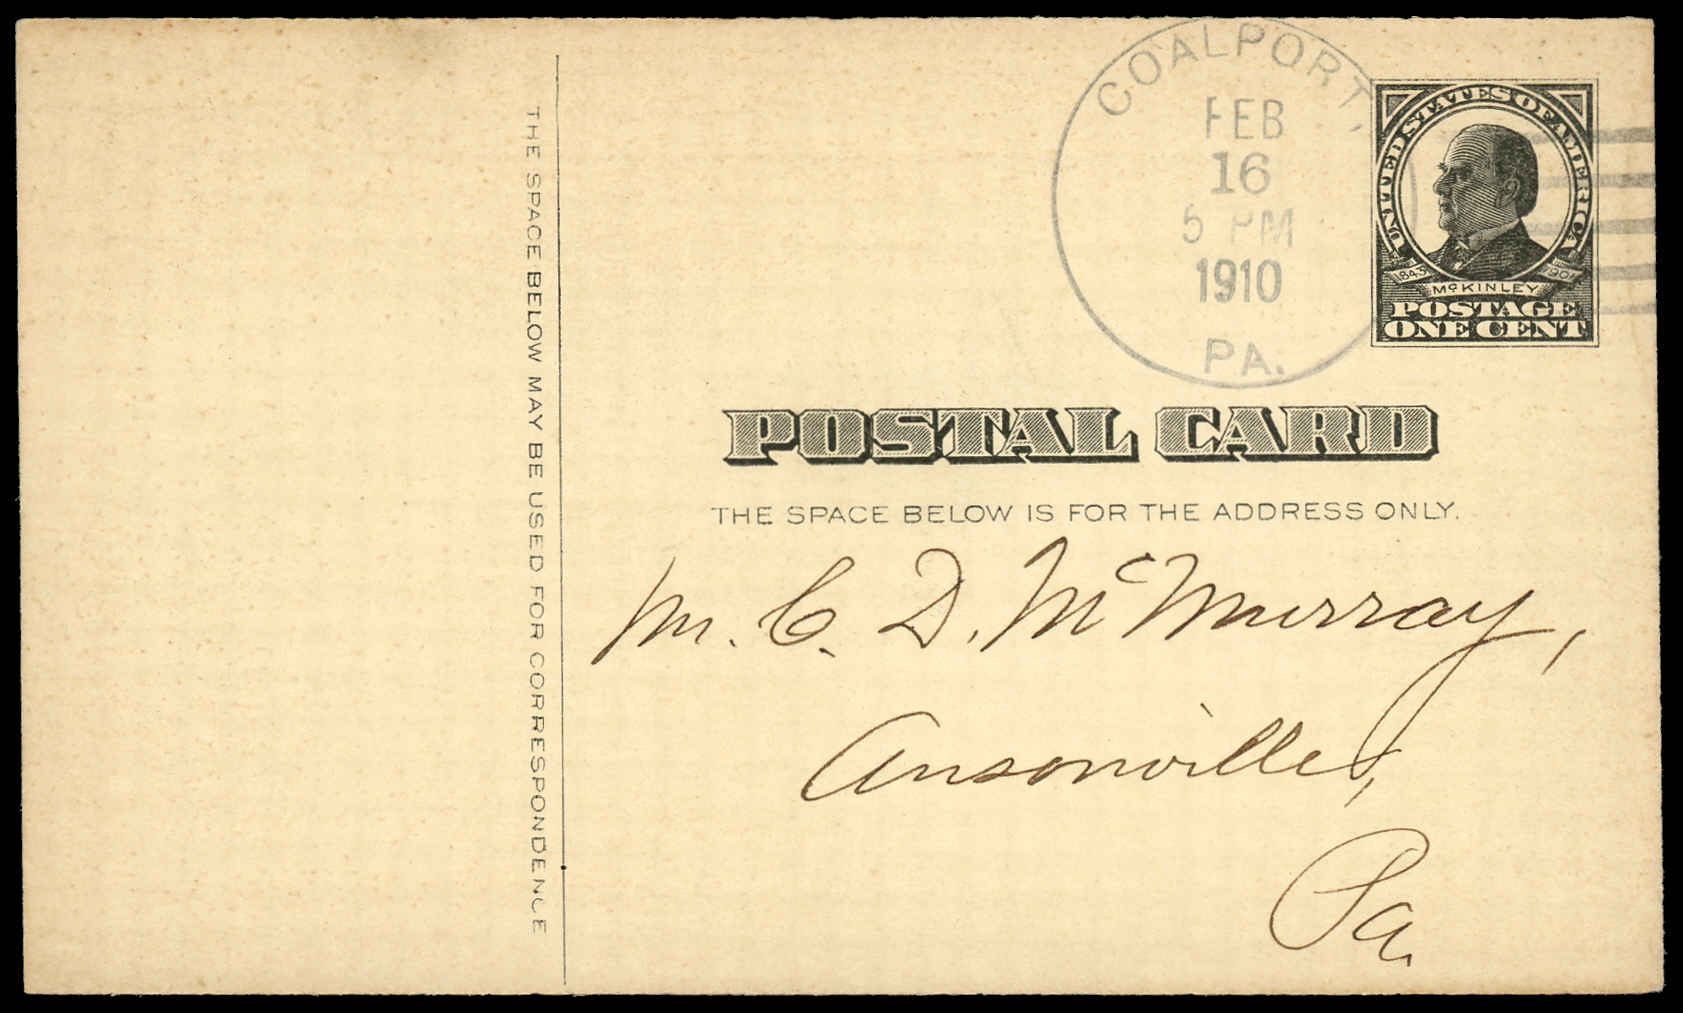 COALPORT,
FEB
16
5 PM
1910
PA.
UNITED STATES OF AMERICA
1843 1901
McKINLEY
POSTAGE
ONE CENT
POSTAL CARD
THE SPACE BELOW IS FOR THE ADDRESS ONLY.
THE SPACE BELOW MAY BE USED FOR CORRESPONDENCE
Mr. C. D. McMurray,
Ansonville,
Pa.